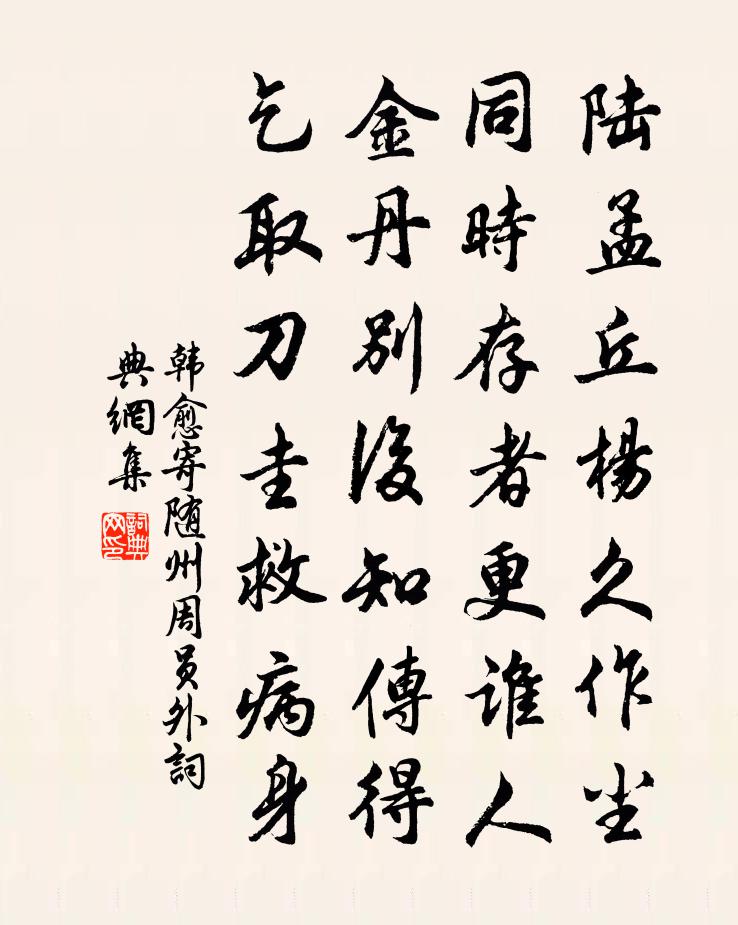 陆孟丘楊久作尘
同時存者更誰人
金丹别後知傳得
乞取刀圭救病身
韩愈寄随州周员外詞
典網集
詞典网印